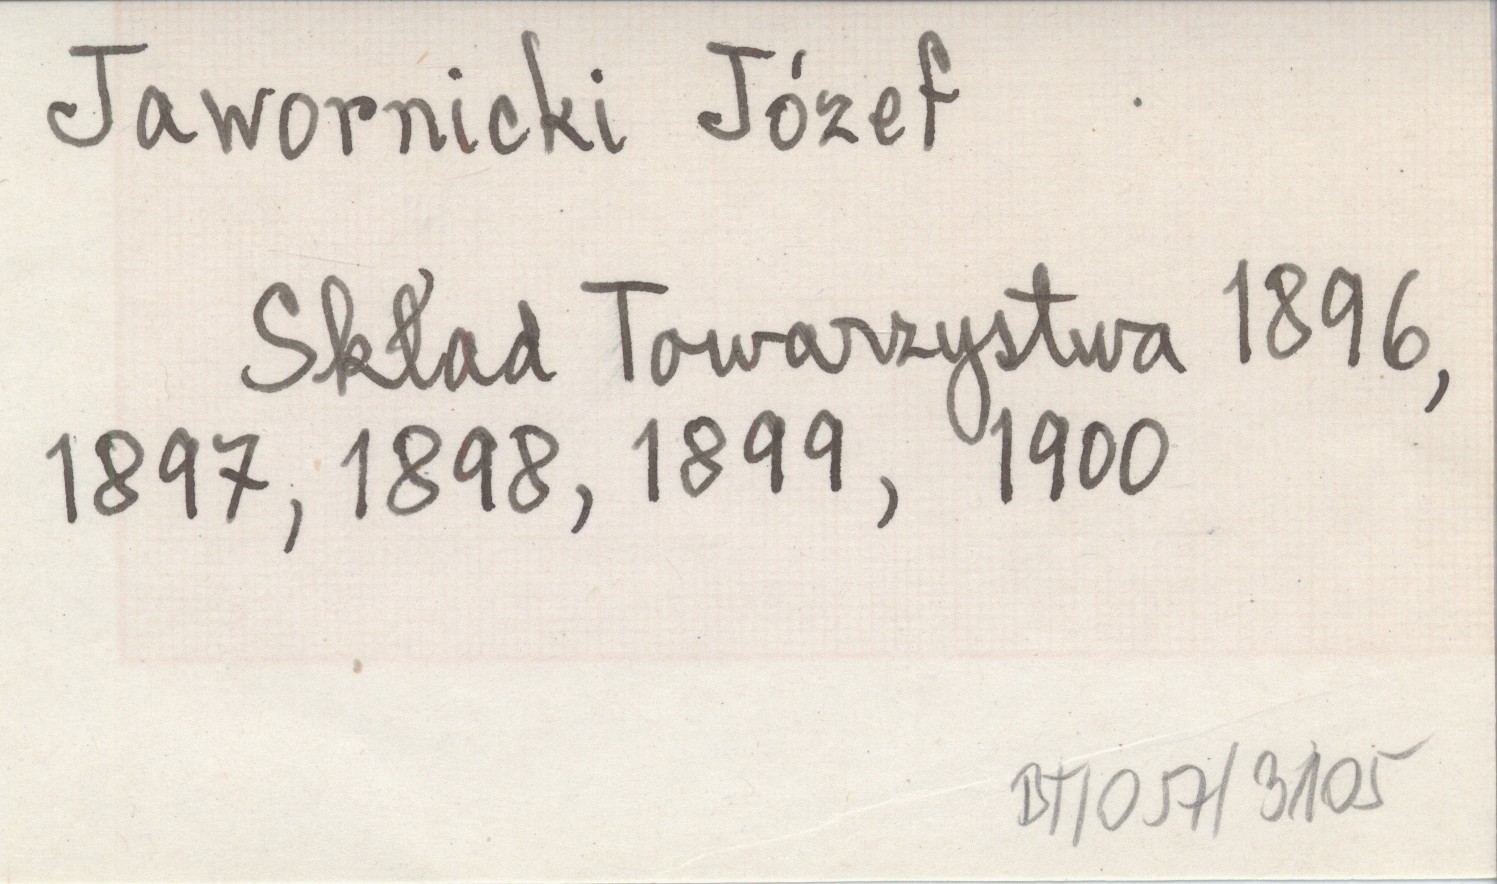 Jawornicki Józef
Skład Towarzystwa 1896,
1897, 1898, 1899, 1900
BT/057/3105